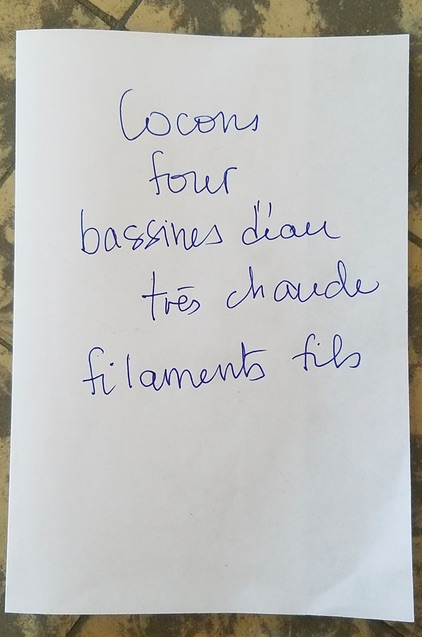 Cocons
four
bassines d'eau
très chaude
filaments fils